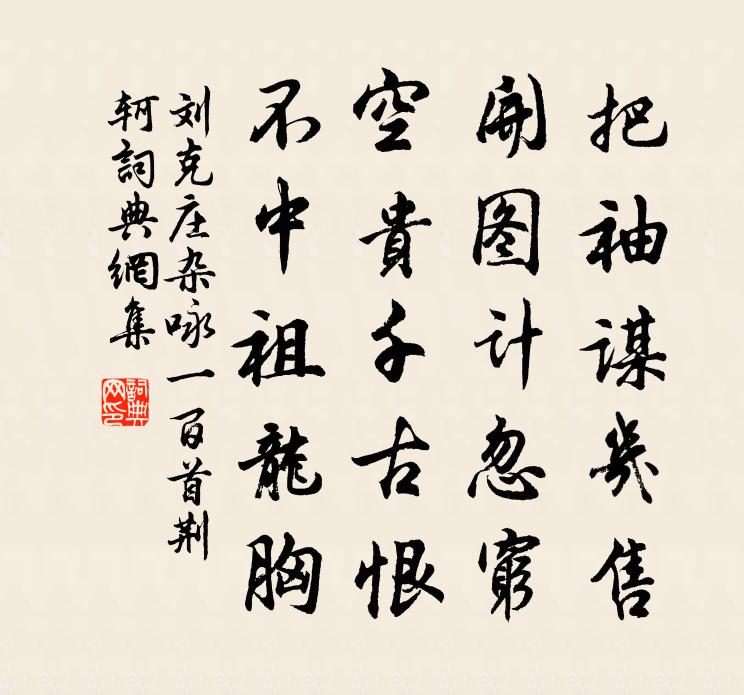 把袖謀幾售
開图计忽窮
空貴千古恨
不中祖龍胸
刘克庄杂咏一百首荆
轲詞典網集
詞典
网印